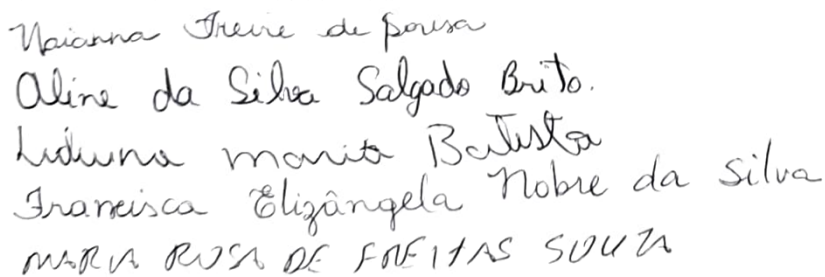 Naianna Freire de Sousa
Aline da Silva Salgado Brito.
Liduina maria Batista
Francisca Elizângela Nobre da Silva
MARIA ROSA DE FREITAS SOUZA